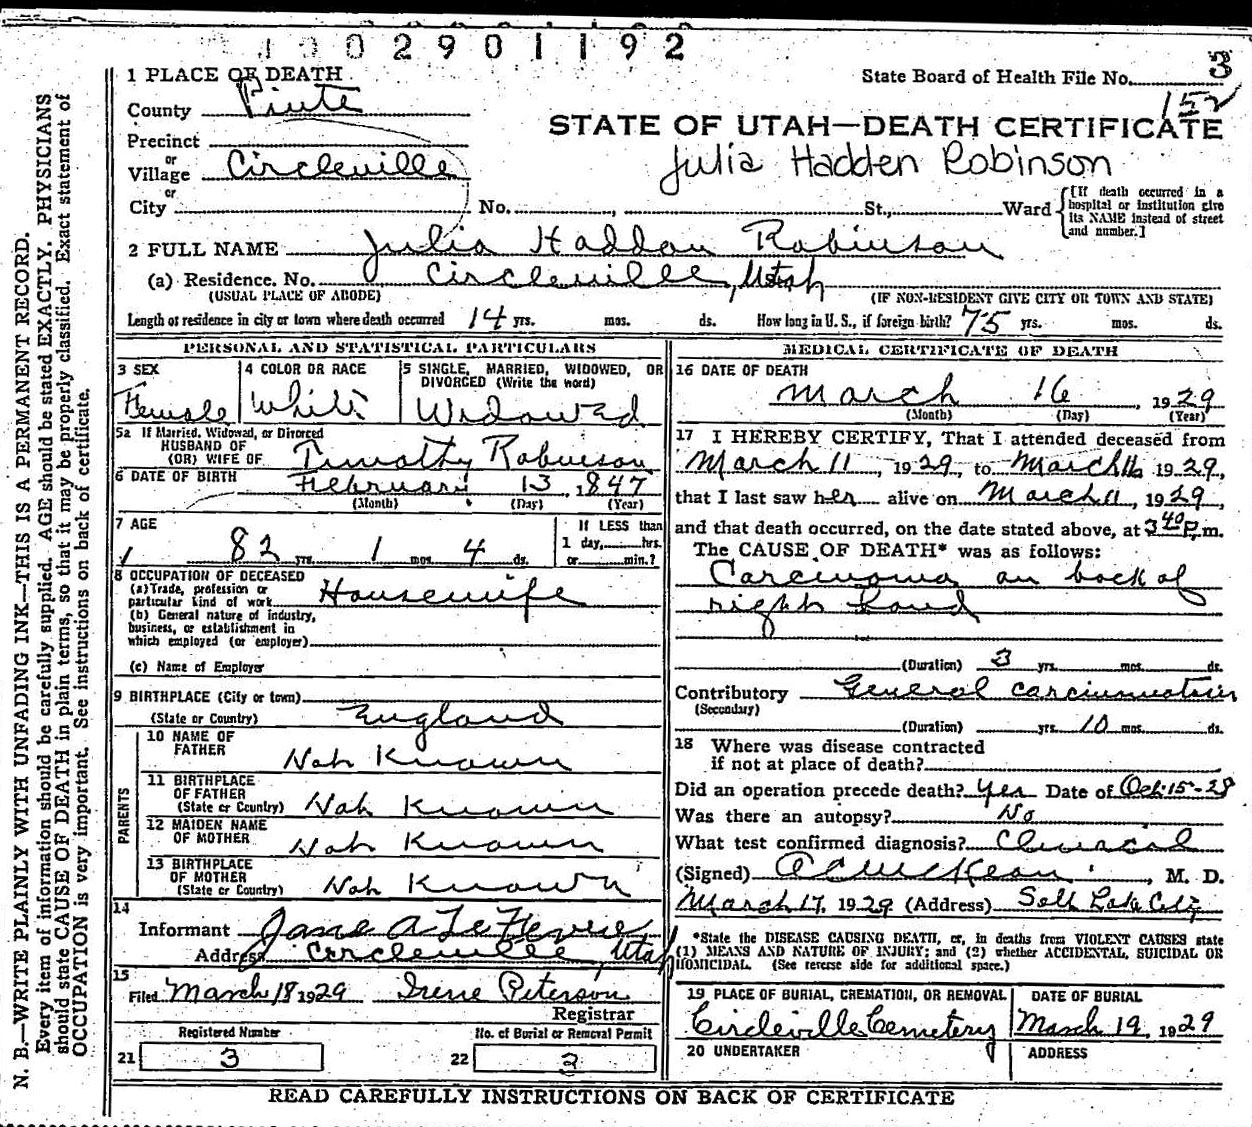 0 0 2 9 0 1 1 9 2
1 PLACE OF DEATH
State Board of Health File No. 3
County Piute
152
STATE OF UTAH—DEATH CERTIFICATE
Precinct
or
Julia Hadden Robinson
Village Circleville
or
City No. , St., Ward
[If death occurred in a hospital or institution give its NAME instead of street and number.]
2 FULL NAME Julia Haddon Robinson
(a) Residence. No. Circleville, Utah
(USUAL PLACE OF ABODE) (IF NON-RESIDENT GIVE CITY OR TOWN AND STATE)
Length of residence in city or town where death occurred 14 yrs. mos. ds. How long in U. S., if foreign birth? 75 yrs. mos. ds.
PERSONAL AND STATISTICAL PARTICULARS
3 SEX 4 COLOR OR RACE 5 SINGLE, MARRIED, WIDOWED, OR
DIVORCED (Write the word)
Female White Widowed
5a If Married, Widowed, or Divorced
HUSBAND OF
(OR) WIFE OF Timothy Robinson
6 DATE OF BIRTH February 13, 1847
(Month) (Day) (Year)
7 AGE If LESS than
82 yrs. 1 mos. 4 ds. 1 day, hrs.
or min.?
8 OCCUPATION OF DECEASED
(a) Trade, profession or
particular kind of work Housewife
(b) General nature of industry,
business, or establishment in
which employed (or employer)
(c) Name of Employer
9 BIRTHPLACE (City or town)
(State or Country) England
PARENTS
10 NAME OF
FATHER Not Known
11 BIRTHPLACE
OF FATHER
(State or Country) Not Known
12 MAIDEN NAME
OF MOTHER Not Known
13 BIRTHPLACE
OF MOTHER
(State or Country) Not Known
14
Informant Jane A Le Fevre
Address Circleville, Utah
15
Filed March 18 1929 Irene Peterson
Registrar
Registered Number No. of Burial or Removal Permit
21 3 22 3
MEDICAL CERTIFICATE OF DEATH
16 DATE OF DEATH
March 16, 1929
(Month) (Day) (Year)
17 I HEREBY CERTIFY, That I attended deceased from
March 11, 1929, to March 16 1929,
that I last saw her alive on March 11, 1929,
and that death occurred, on the date stated above, at 3 40 P.m.
The CAUSE OF DEATH* was as follows:
Carcinoma on back of
right hand
(Duration) 3 yrs. mos. ds.
Contributory General carcinomatosis
(Secondary)
(Duration) yrs. 10 mos. ds.
18 Where was disease contracted
if not at place of death?
Did an operation precede death? Yes Date of Oct-15-28
Was there an autopsy? No
What test confirmed diagnosis? Clinical
(Signed) , M. D.
March 17, 1929 (Address) Salt Lake City
*State the DISEASE CAUSING DEATH, or, in deaths from VIOLENT CAUSES state
(1) MEANS AND NATURE OF INJURY; and (2) whether ACCIDENTAL, SUICIDAL OR
HOMICIDAL. (See reverse side for additional space.)
19 PLACE OF BURIAL, CREMATION, OR REMOVAL DATE OF BURIAL
Circleville Cemetery March 19, 1929
20 UNDERTAKER ADDRESS
READ CAREFULLY INSTRUCTIONS ON BACK OF CERTIFICATE
N. B.—WRITE PLAINLY WITH UNFADING INK—THIS IS A PERMANENT RECORD.
Every item of information should be carefully supplied. AGE should be stated EXACTLY. PHYSICIANS
should state CAUSE OF DEATH in plain terms, so that it may be properly classified. Exact statement of
OCCUPATION is very important. See instructions on back of certificate.